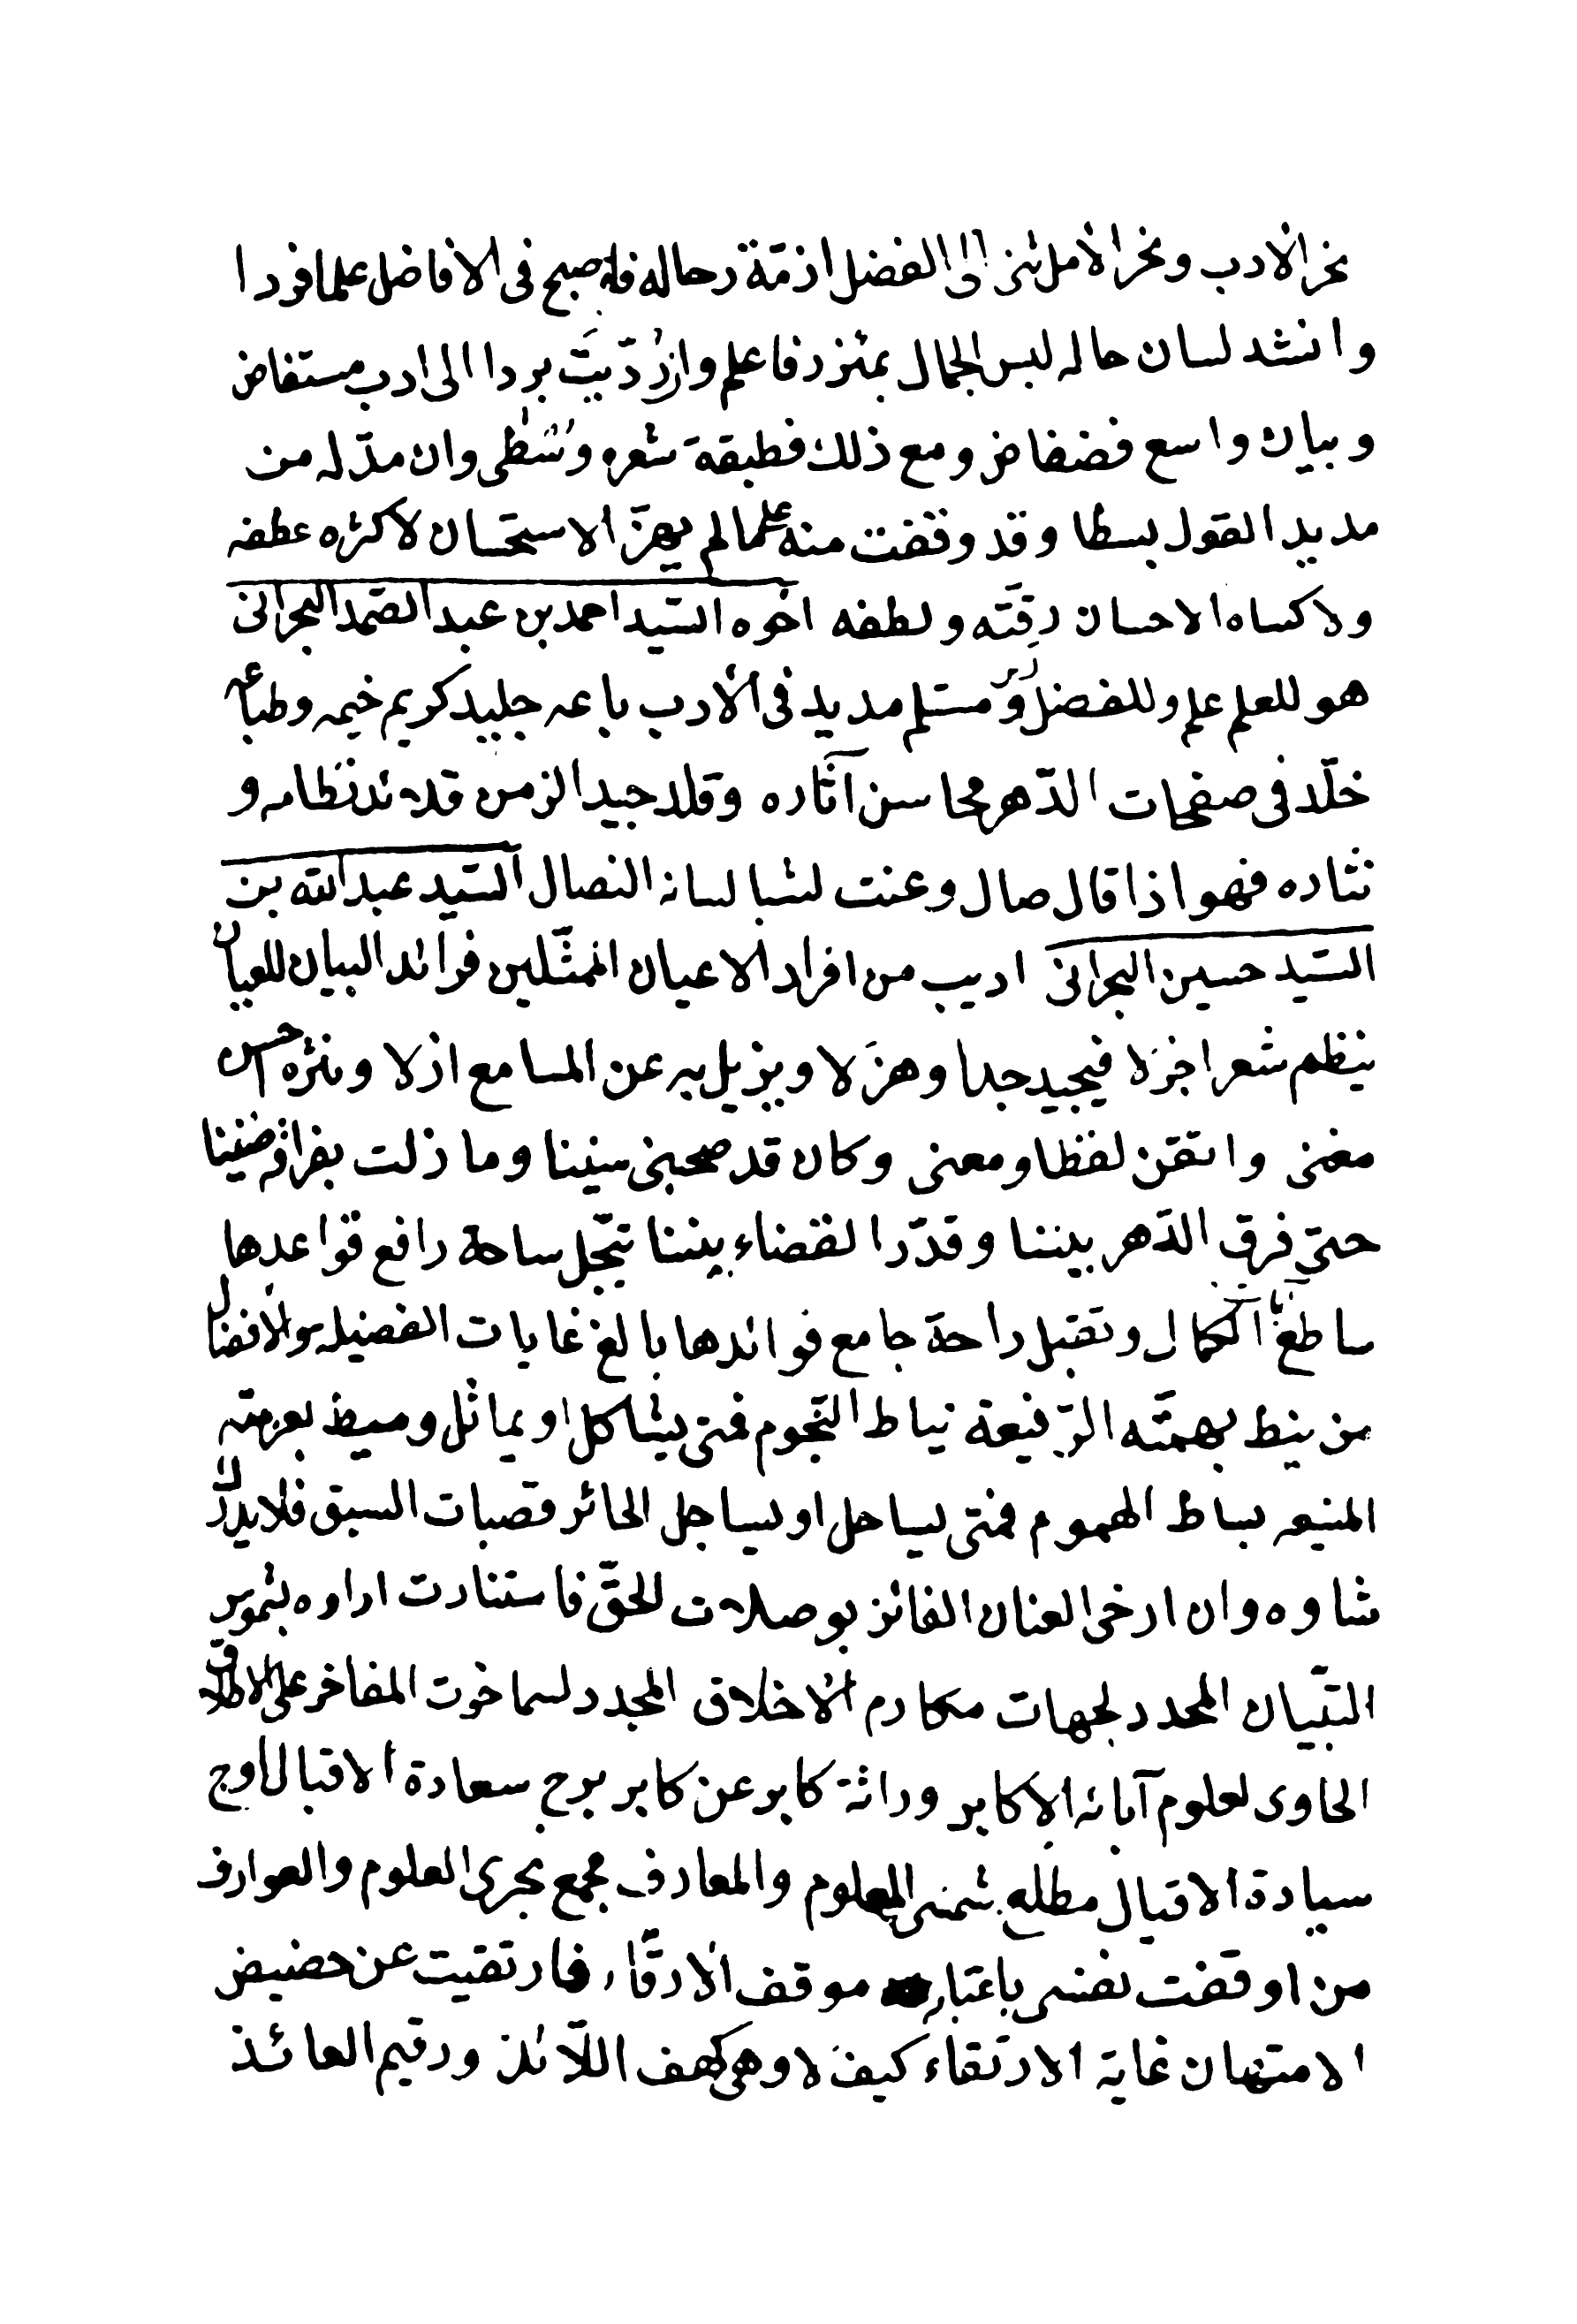 نحر الأدب ونخر الأمل ثنى الى الفضل ازمّة رحاله فاصبح فى الافاضل علما فردا
وانشد لسان حاله ليس الجمال بمئزر فاعلم وان رُدّيتَ بردا الى ادب مستفاض
وبيان واسع فضفاض ومع ذلك فطبقة شعره وُسْطى وان مدّ له من
مديد القول بسطا وقد وقفت منه على ما لم يهزّ الاستحسان لاكثره عطفه
ولا كساه الاحسان رقّته ولطفه اخوه السّيد احمد بن عبد الصّمد البحرانى
هو للعلم علم وللفضل ركن مستلم مديد فى الأدب باعه جليد كريم خيمه وطباعه
خلّد فى صفحات الدّهر محاسن آثاره وقلد جيد الزمن قلائد نظامه و
نثاره فهو اذا قال صال وعنت لشبا لسانه النصال السّيد عبد الله بن
السّيد حسين البحرانى اديب من افراد الاعيان الممثّلين فرائد البيان للعيان
ينظم شعرا جزلا فيجيد جدا وهزلا ويزيل به عن المسامع ازلا ونثره احسن
مغنى واتقن لفظا ومعنى وكان قد صحبنى سنينا وما زلت بفراقه ضنينا
حتى فرق الدّهر بيننا وقدّر القضاء بيننا تبجّل ساحة رافع قواعدها
ساطع الكمال وتقبل راحة جامع فوائدها بالغ غايات الفضيلة والأفضال
من ينط بهمّته الرّفيعة نياط النّجوم فمتى يشاكل او يماثل وميط بعزمته
المنيعه بساط الهموم فمتى يساحل او يساجل الحائز قصبات السبق فلا يدرك
شاوه وان ارخى العنان الفائز بوصلات للحقّ فاستنارت اراوه بشموس
التبّيان المحدد لجهات مكارم الأخلاق المجدد لسماخوت المفاخر على الاطلاق
الحاوى لعلوم آبائه الاكابر وراثة كابر عن كابر برج سعادة الاقبال اوج
سيادة الاقيال مطلع شمسى المعلوم والمعارف مجمع بحرى العلوم والعوارف
من اوقفت نفسى باعتابه موقف الارقّاء فارتقيت عن حضيض
الامتهان غاية الارتقاء كيف لا وهى كهف اللّائذ ورقيم العائذ